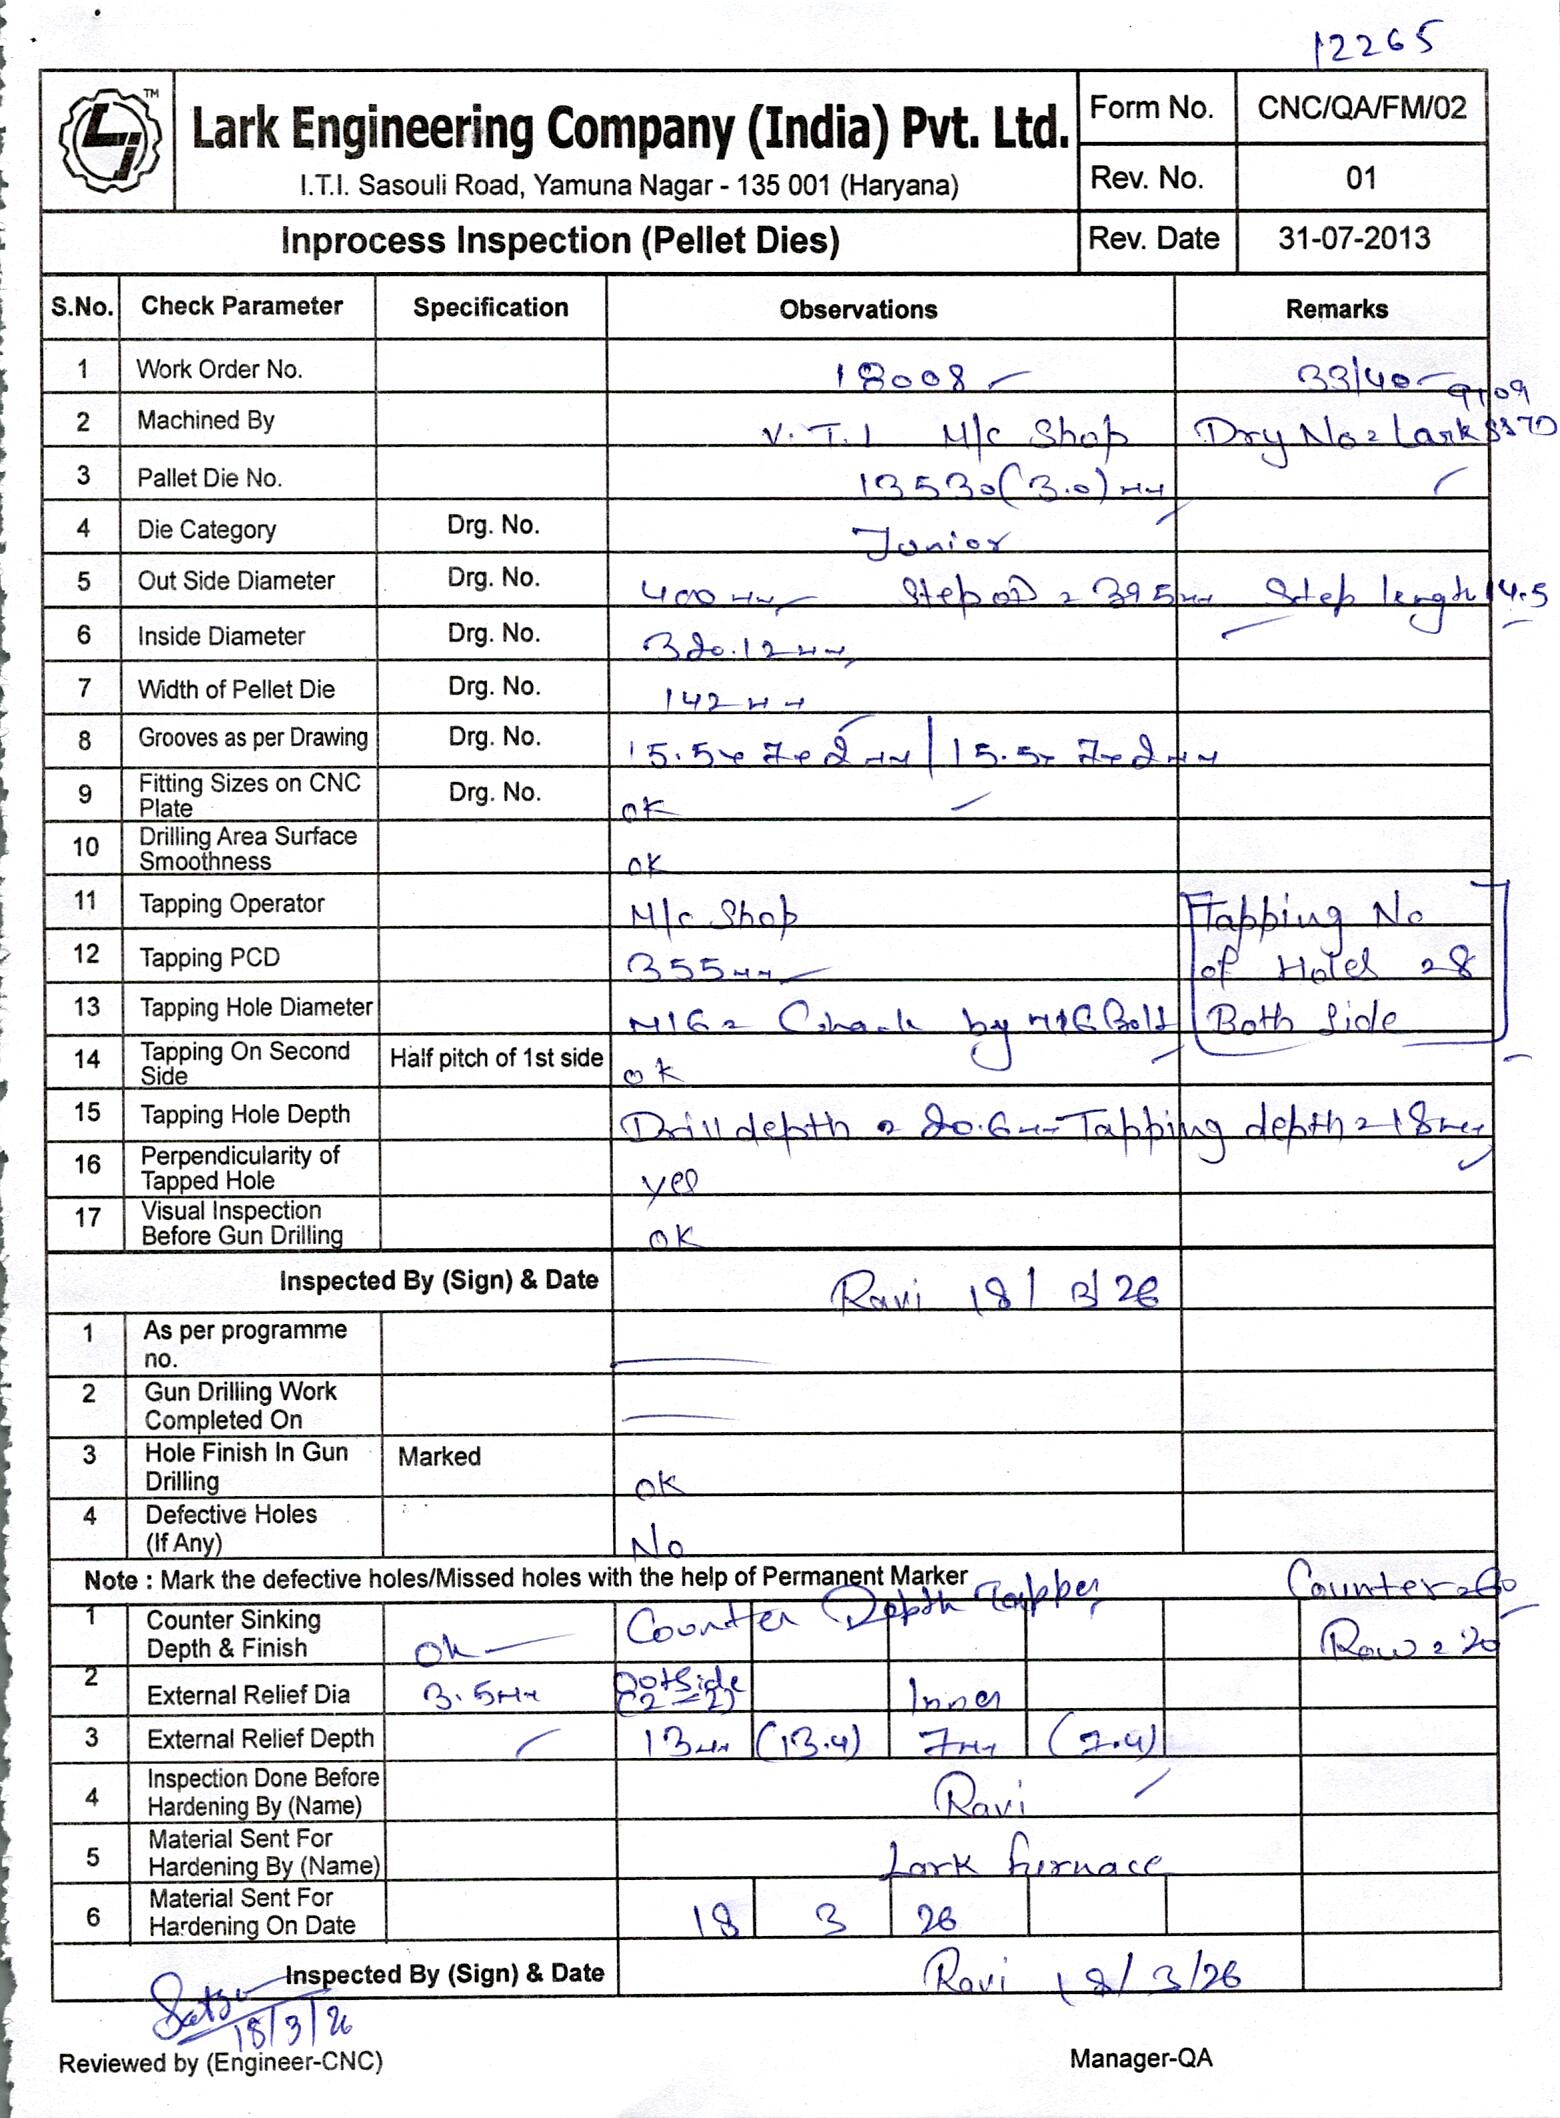 12265
TM
Lark Engineering Company (India) Pvt. Ltd.
I.T.I. Sasouli Road, Yamuna Nagar - 135 001 (Haryana)
Form No. CNC/QA/FM/02
Rev. No. 01
Inprocess Inspection (Pellet Dies)
Rev. Date 31-07-2013
S.No. Check Parameter Specification Observations Remarks
1 Work Order No. 18008 33/40
2 Machined By V.T.I M/c Shop Drg No = Lark
3 Pallet Die No. 13530 (3.0) mm
4 Die Category Drg. No. Junior
5 Out Side Diameter Drg. No. 400 mm Step OD = 395 mm Step length 14.5
6 Inside Diameter Drg. No. 320.12 mm
7 Width of Pellet Die Drg. No. 142 mm
8 Grooves as per Drawing Drg. No. 15.5 x 7 x 2 mm | 15.5 x 7 x 2 mm
9 Fitting Sizes on CNC
Plate Drg. No. ok
10 Drilling Area Surface
Smoothness ok
11 Tapping Operator M/c Shop Tapping No
12 Tapping PCD 355 mm of Holes = 8
13 Tapping Hole Diameter M16 = Check by M16 Bolt Both Side
14 Tapping On Second
Side Half pitch of 1st side ok
15 Tapping Hole Depth Drill depth = 20.6 mm Tapping depth = 18 mm
16 Perpendicularity of
Tapped Hole yes
17 Visual Inspection
Before Gun Drilling ok
Inspected By (Sign) & Date Ravi 18/3/26
1 As per programme
no.
2 Gun Drilling Work
Completed On
3 Hole Finish In Gun
Drilling Marked ok
4 Defective Holes
(If Any) No
Note : Mark the defective holes/Missed holes with the help of Permanent Marker
Counter = 60
1 Counter Sinking
Depth & Finish ok Counter Depth Tapper Row = 20
2 External Relief Dia 3.5 mm Outside Inner
3 External Relief Depth 13 mm (13.4) 7 mm (7.4)
4 Inspection Done Before
Hardening By (Name) Ravi
5 Material Sent For
Hardening By (Name) Lark furnace
6 Material Sent For
Hardening On Date 18 3 26
Inspected By (Sign) & Date Ravi 18/3/26
18/3/26
Reviewed by (Engineer-CNC)
Manager-QA